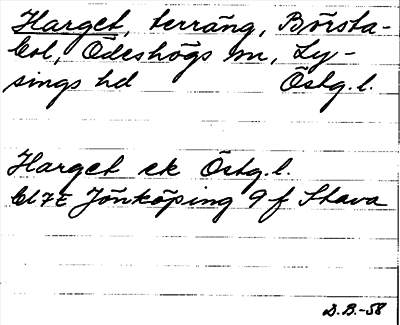 Harget, terräng, Börsta-
bol, Ödeshögs sn, Ly-
sings hd Östg.l.
Harget ek Östg.l.
bl 7E Jönköping 9 f Stava
D.B.-58